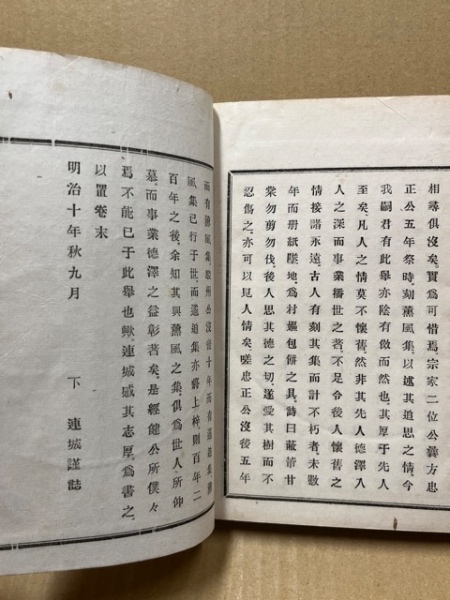 相尋俱沒矣實爲可惜焉宗家二位公霽方忠
正公五年祭時刻薰風集以述其追思之情今
我嗣君有此舉亦陰有倣而然也其厚于先人
至矣凡人之情莫不懷舊然非其先人德澤入
人之深而事業播世之著不足令後人懷舊之
情接諸永遠古人有刻其集而計不朽者未數
年而册紙墜地爲村媼包餅之具詩曰蔽芾甘
棠勿剪勿伐後人思其德之切謹愛其樹而不
認傷之亦可以見人情矣嗟忠正公沒後五年
而有薰風集歐州公沒後十年而有追
風集已行于世而遺追集亦將上梓則百年二
百年之後余知其與薰風之集俱爲世人所仰
慕而事業德澤之益彰著矣是經健公所僕々
焉不能已于此舉也歟連城感其志厚爲書之
以置卷末
明治十年秋九月
下 連城謹誌